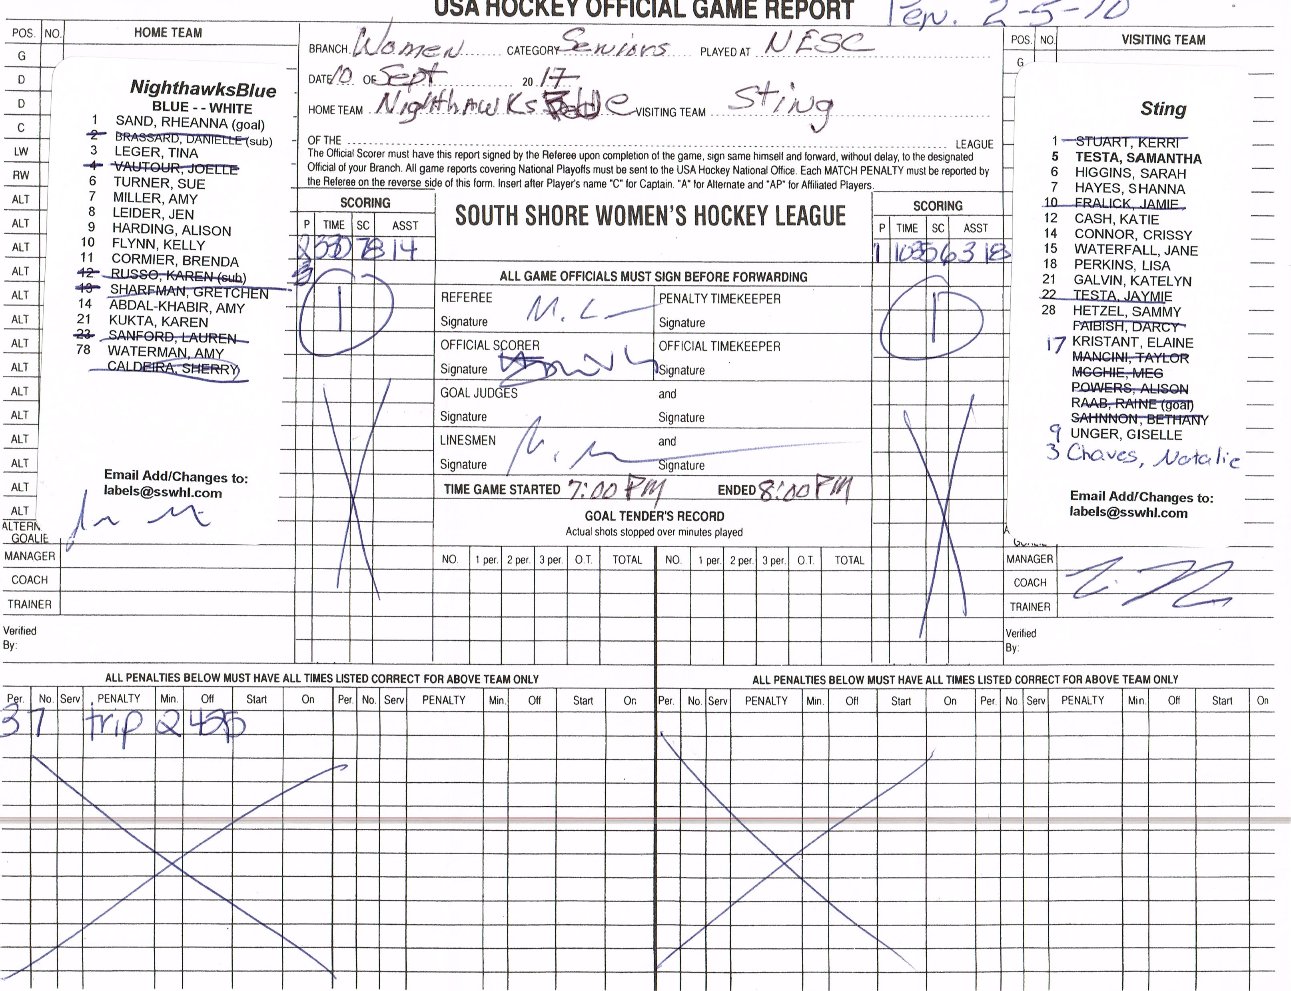 USA HOCKEY OFFICIAL GAME REPORT Pen. 2-5-10
POS. NO. HOME TEAM
G
D
D
C
LW
RW
ALT
ALT
ALT
ALT
ALT
ALT
ALT
ALT
ALT
ALT
ALT
ALT
ALT
ALT
ALTERN
GOALIE
MANAGER
COACH
TRAINER
Verified
By:
NighthawksBlue
BLUE - - WHITE
1 SAND, RHEANNA (goal)
2 BRASSARD, DANIELLE (sub)
3 LEGER, TINA
4 VAUTOUR, JOELLE
6 TURNER, SUE
7 MILLER, AMY
8 LEIDER, JEN
9 HARDING, ALISON
10 FLYNN, KELLY
11 CORMIER, BRENDA
12 RUSSO, KAREN (sub)
13 SHARFMAN, GRETCHEN
14 ABDAL-KHABIR, AMY
21 KUKTA, KAREN
23 SANFORD, LAUREN
78 WATERMAN, AMY
CALDEIRA, SHERRY
Email Add/Changes to:
labels@sswhl.com
BRANCH Women CATEGORY Seniors PLAYED AT NESC
DATE 10 OF Sept 20 17
HOME TEAM Nighthawks VISITING TEAM Sting
OF THE LEAGUE
The Official Scorer must have this report signed by the Referee upon completion of the game, sign same himself and forward, without delay, to the designated
Official of your Branch. All game reports covering National Playoffs must be sent to the USA Hockey National Office. Each MATCH PENALTY must be reported by
the Referee on the reverse side of this form. Insert after Player's name "C" for Captain. "A" for Alternate and "AP" for Affiliated Players.
SCORING
P TIME SC ASST
78 14
1
SOUTH SHORE WOMEN'S HOCKEY LEAGUE
ALL GAME OFFICIALS MUST SIGN BEFORE FORWARDING
REFEREE PENALTY TIMEKEEPER
Signature Signature
OFFICIAL SCORER OFFICIAL TIMEKEEPER
Signature Signature
GOAL JUDGES and
Signature Signature
LINESMEN and
Signature Signature
TIME GAME STARTED 7:00 PM ENDED 8:00 PM
GOAL TENDER'S RECORD
Actual shots stopped over minutes played
NO. 1 per. 2 per. 3 per. O.T. TOTAL NO. 1 per. 2 per. 3 per. O.T. TOTAL
SCORING
P TIME SC ASST
1 1035 6 3 18
1
POS. NO. VISITING TEAM
G
Sting
1 STUART, KERRI
5 TESTA, SAMANTHA
6 HIGGINS, SARAH
7 HAYES, SHANNA
10 FRALICK, JAMIE
12 CASH, KATIE
14 CONNOR, CRISSY
15 WATERFALL, JANE
18 PERKINS, LISA
21 GALVIN, KATELYN
22 TESTA, JAYMIE
28 HETZEL, SAMMY
PAIBISH, DARCY
17 KRISTANT, ELAINE
MANCINI, TAYLOR
MCGHIE, MEG
POWERS, ALISON
RAAB, RAINE (goal)
SAHNNON, BETHANY
9 UNGER, GISELLE
3 Chaves, Natalie
Email Add/Changes to:
labels@sswhl.com
MANAGER
COACH
TRAINER
Verified
By:
ALL PENALTIES BELOW MUST HAVE ALL TIMES LISTED CORRECT FOR ABOVE TEAM ONLY
Per. No. Serv PENALTY Min. Off Start On Per. No. Serv PENALTY Min. Off Start On
3 7 trip 2
ALL PENALTIES BELOW MUST HAVE ALL TIMES LISTED CORRECT FOR ABOVE TEAM ONLY
Per. No. Serv PENALTY Min. Off Start On Per. No Serv PENALTY Min. Off Start On